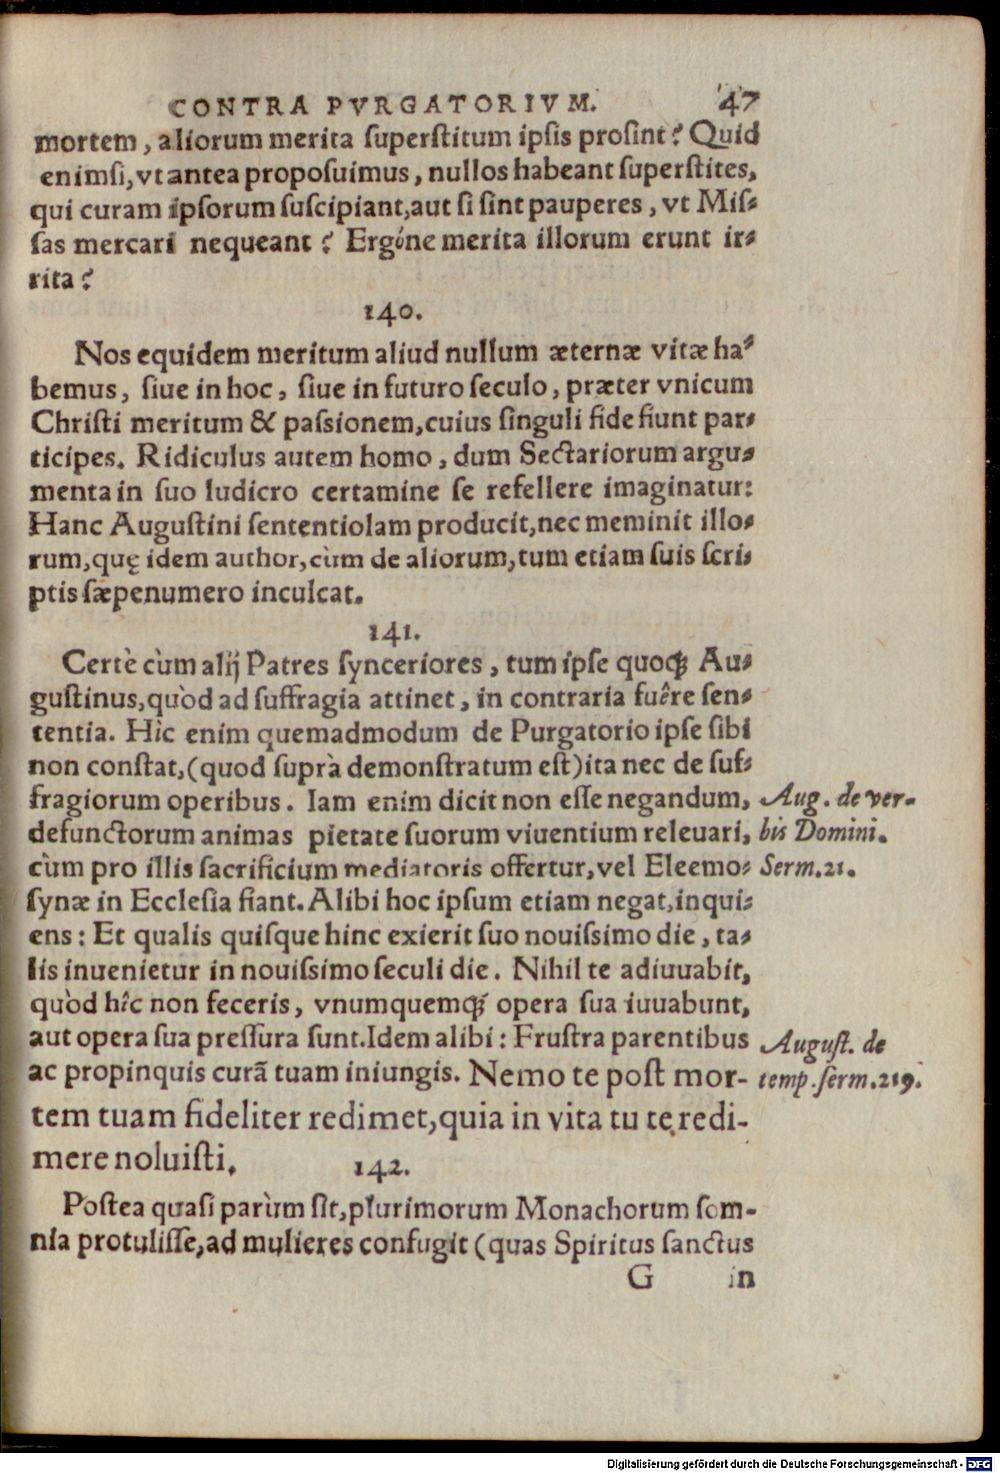 CONTRA PVRGATORIVM. 47
mortem, aliorum merita superſtitum ipſis proſint? Quid
enim ſi, vt antea propoſuimus, nullos habeant ſuperſtites,
qui curam ipſorum ſuſcipiant, aut ſi ſint pauperes, vt Miſ-
ſas mercari nequeant? Ergóne merita illorum erunt ir-
rita?
140.
Nos equidem meritum aliud nullum æternæ vitæ ha-
bemus, ſiue in hoc, ſiue in futuro ſeculo, præter vnicum
Chriſti meritum & paſsionem, cuius ſinguli fide fiunt par-
ticipes. Ridiculus autem homo, dum Sectariorum argu-
menta in ſuo ludicro certamine ſe refellere imaginatur:
Hanc Auguſtini ſententiolam producit, nec meminit illo-
rum, quę idem author, cùm de aliorum, tum etiam ſuis ſcri-
ptis ſæpenumero inculcat.
141.
Certè cùm alij Patres ſynceriores, tum ipſe quoq; Au-
guſtinus, quòd ad ſuffragia attinet, in contraria fuêre ſen-
tentia. Hîc enim quemadmodum de Purgatorio ipſe ſibi
non conſtat, (quod ſuprà demonſtratum eſt) ita nec de ſuf-
fragiorum operibus. Iam enim dicit non eſſe negandum, Aug. de ver-
defunctorum animas pietate ſuorum viuentium releuari, bis Domini.
cùm pro illis ſacrificium mediatoris offertur, vel Eleemo- Serm. 21.
ſynæ in Eccleſia fiant. Alibi hoc ipſum etiam negat, inqui-
ens: Et qualis quiſque hinc exierit ſuo nouiſsimo die, ta-
lis inuenietur in nouiſsimo ſeculi die. Nihil te adiuuabit,
quòd hîc non feceris, vnumquemq; opera ſua iuuabunt,
aut opera ſua preſſura ſunt. Idem alibi: Fruſtra parentibus Auguſt. de
ac propinquis curã tuam iniungis. Nemo te poſt mor- temp. ſerm. 219.
tem tuam fideliter redimet, quia in vita tu te redi-
mere noluiſti.
142.
Poſtea quaſi parùm ſit, plurimorum Monachorum ſom-
nia protuliſſe, ad mulieres confugit (quas Spiritus ſanctus
G in
Digitalisierung gefördert durch die Deutsche Forschungsgemeinschaft - DFG